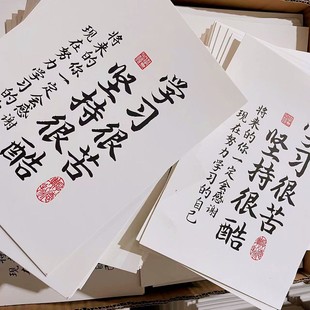 学习很苦
坚持很酷
将来的你一定会感谢
现在努力学习的
学习很苦
坚持很酷
将来的你一定会感谢
现在努力学习的自己